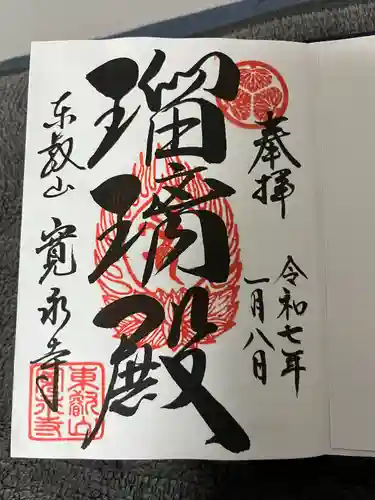 奉拝
令和七年
一月八日
瑠璃殿
東叡山
寛永寺
東叡山
寛永寺